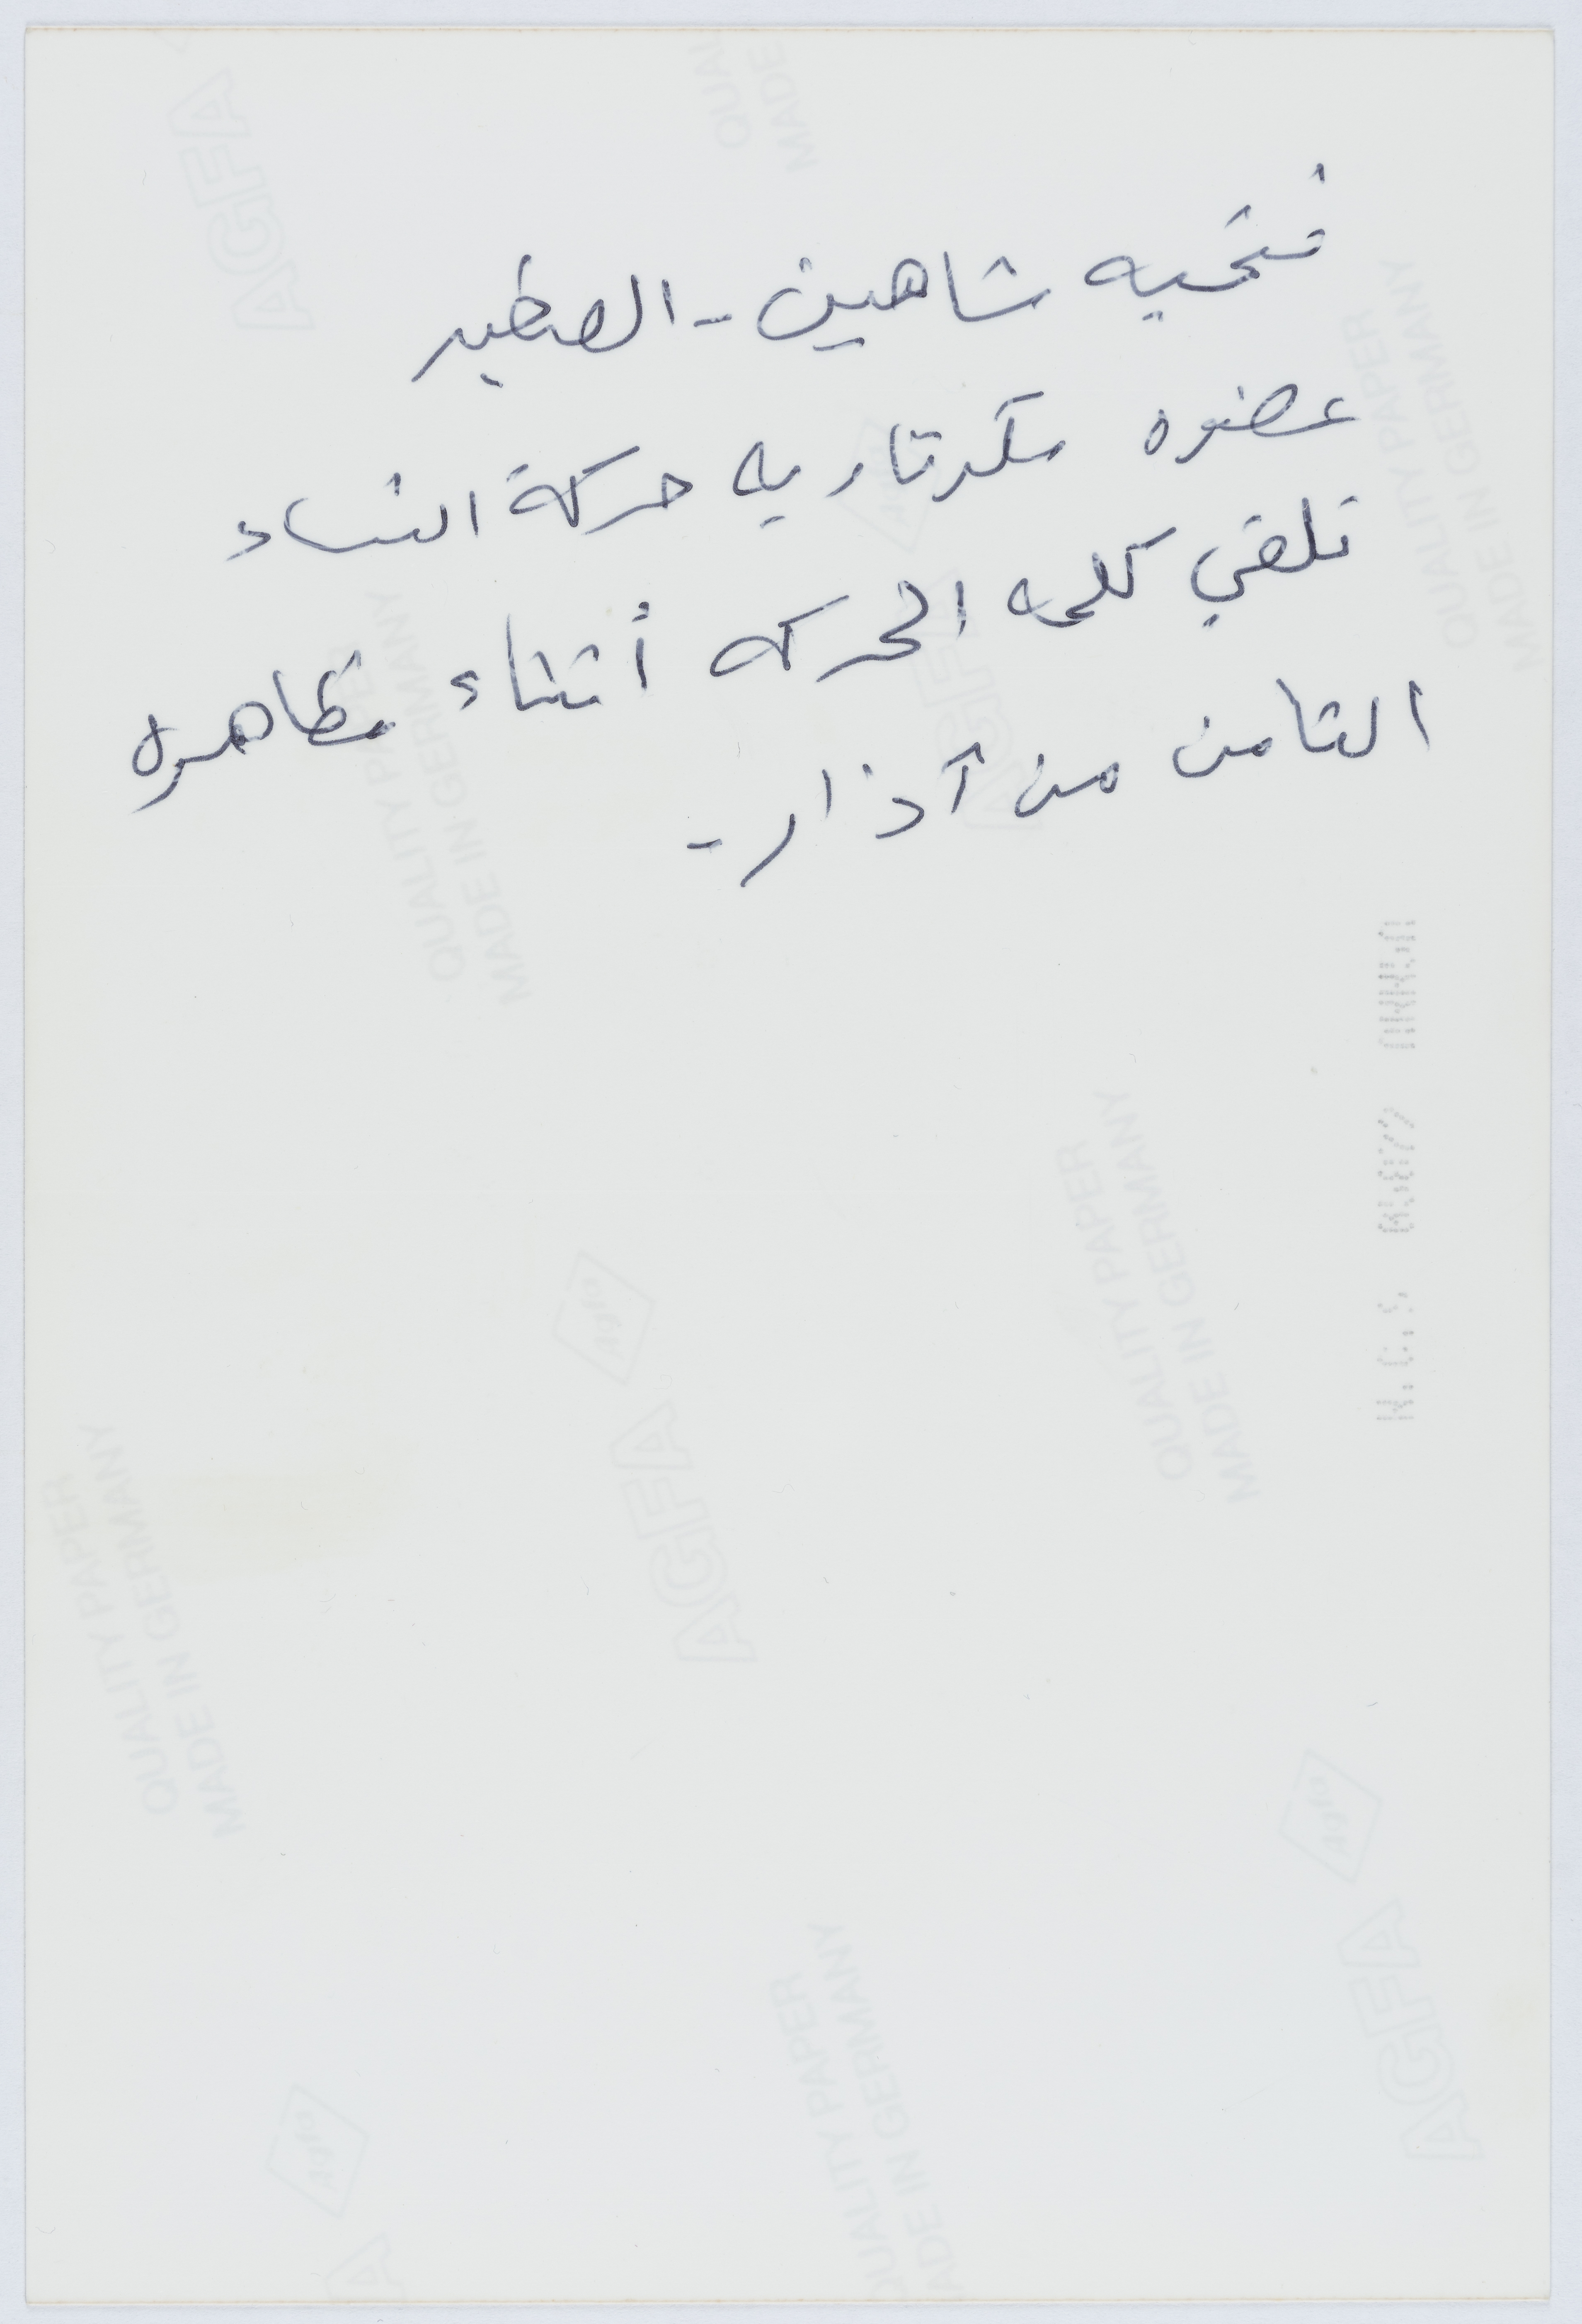 فتحيه شاهين - الصغير
عضوه سكرتاريه حركة النساء
تلقي كلمه الحركه أثناء مظاهره
الثامن من آذار -
AGFA
QUALITY PAPER
MADE IN GERMANY